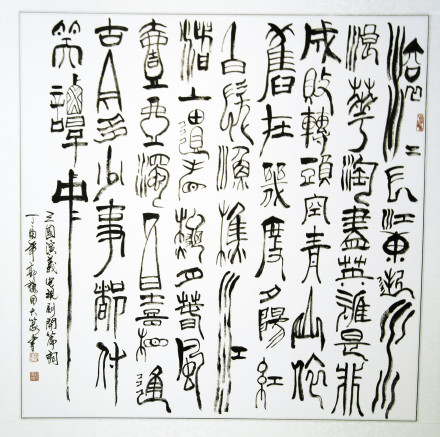 滾〻長江東逝水
浪華淘盡英雄是非
成敗轉頭空青山依
舊在幾度夕陽紅
白髮漁樵江
渚上慣看秋月春風
壹壺濁酒喜相逢
古今多少事都付
笑譚中
三國演義電視劇開篇詞
丁酉年郭田大篆書